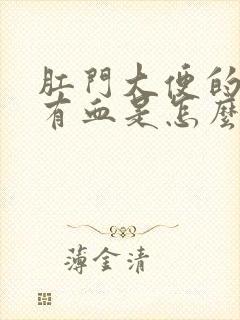 肛門大便的
有血是怎麼
薄金清